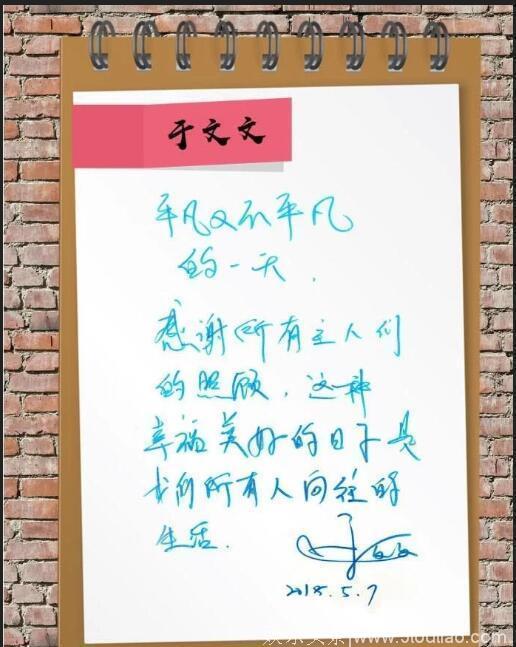 于文文
平凡又不平凡
的一天.
感谢所有主人们
的照顾，这种
幸福美好的日子是
我们所有人向往的
生活.
2018.5.7